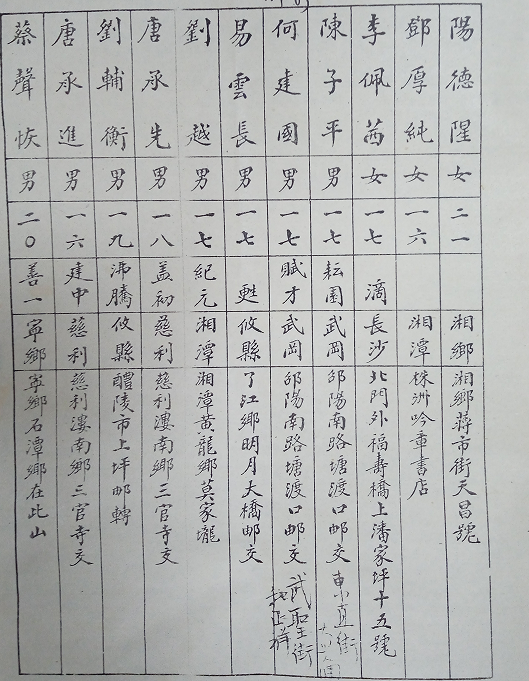 陽德隉 女 二一 湘鄉 湘鄉蔣市街天昌號
鄧厚純 女 一六 湘潭 株洲吟章書店
李佩茜 女 一七 滴 長沙 北門外福壽橋上潘家坪十五號
陳子平 男 一七 耘園 武岡 邵陽南路塘渡口郵交 東直街
何建國 男 一七 賦才 武岡 邵陽南路塘渡口郵交 武聖街
易雲長 男 一七 甦 攸縣 了江鄉明月大橋郵交
劉越 男 一七 紀元 湘潭 湘潭黃龍鄉莫家壠
唐承先 男 一八 盖初 慈利 慈利漊南鄉三官寺交
劉輔衡 男 一九 沸騰 攸縣 醴陵市上坪郵轉
唐承進 男 一六 建中 慈利 慈利漊南鄉三官寺交
蔡聲恢 男 二〇 善一 寧鄉 寧鄉石潭鄉在此山